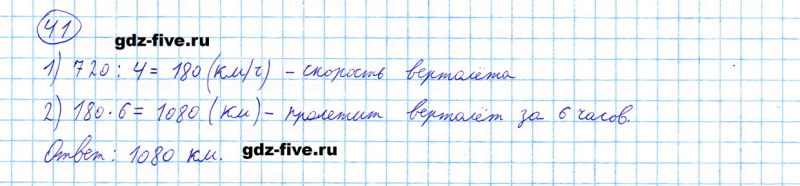 41
gdz-five.ru
1) 720 : 4 = 180 (км/ч) – скорость вертолёта
2) 180 · 6 = 1080 (км) – пролетит вертолёт за 6 часов.
Ответ: 1080 км.
gdz-five.ru